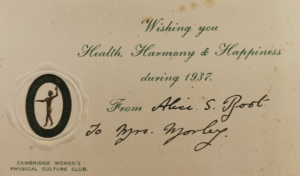 Wishing you
Health, Harmony & Happiness
during 1937.
From Alice S. Root
To Mrs. Morley.
CAMBRIDGE WOMEN'S
PHYSICAL CULTURE CLUB.